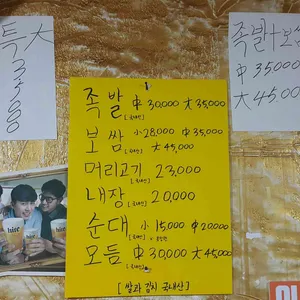 특大
35000
족발
中 30,000 大 35,000
[국내산]
보쌈
小 28,000 中 35,000
[국내산] 大 45,000
머리고기 23,000
[국내산]
내장 20,000
[국내산]
순대 小 15,000 中 20,000
[국내산]
모듬 中 30,000 大 45,000
[쌀과 김치 국내산]
족발+보쌈
中 35000
大 45,00